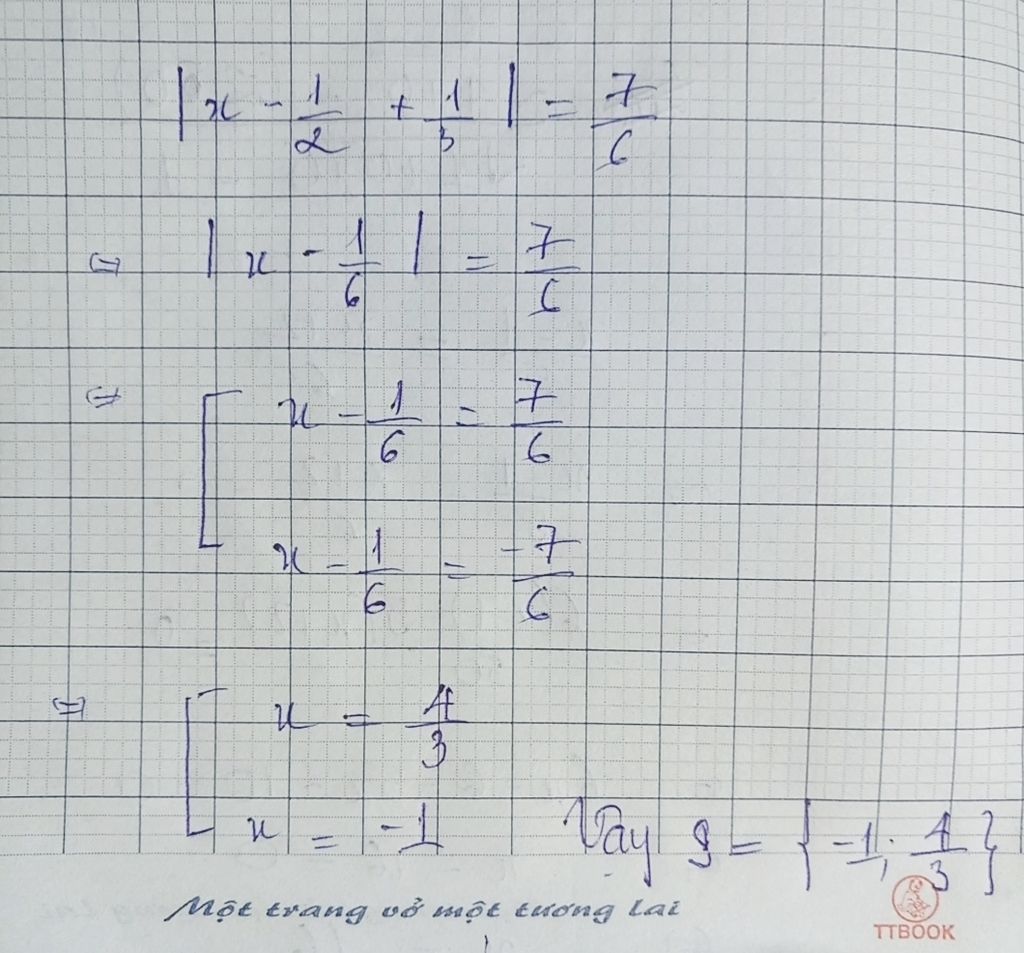 |x - 1/2 + 1/3| = 7/6
⇔ |x - 1/6| = 7/6
⇔ [ x - 1/6 = 7/6
x - 1/6 = -7/6
⇔ [ x = 4/3
x = -1 Vậy S = {-1; 4/3}
Một trang vở một tương lai
TTBOOK